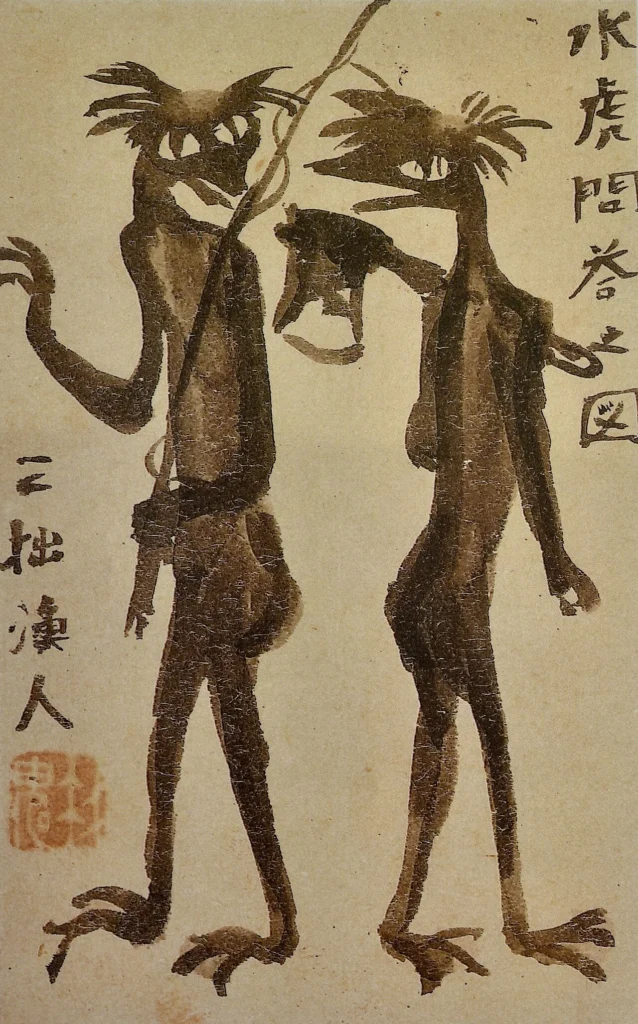 水虎問答之図
二拙漁人